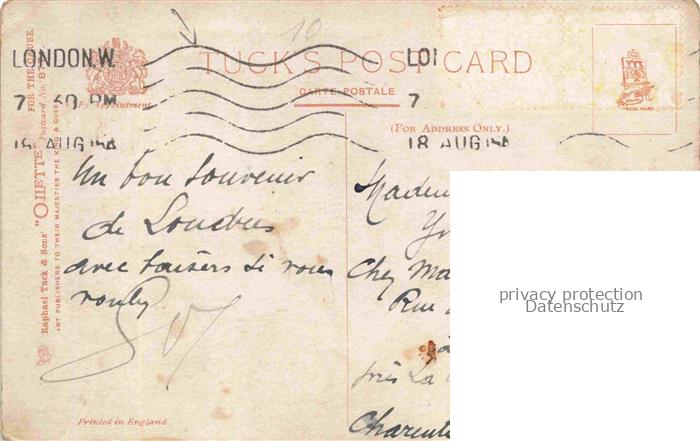 LONDON.W.
7 30 PM
18 AUG 15A
LO
7
18 AUG 15A
10
TUCK'S POST CARD
By Appointment.
CARTE POSTALE
(FOR ADDRESS ONLY.)
TRADE MARK
FOR THE
USE.
Raphael Tuck & Sons' "OILETTE" Postcard No. 8
ART PUBLISHERS TO THEIR MAJESTIES THE KING & QUEEN
Un bon souvenir
de Londres
avec baisers si vous
voulez
Madem
Yv
Chez Ma
Rue
à
près La
Charente
Printed in England
privacy protection
Datenschutz